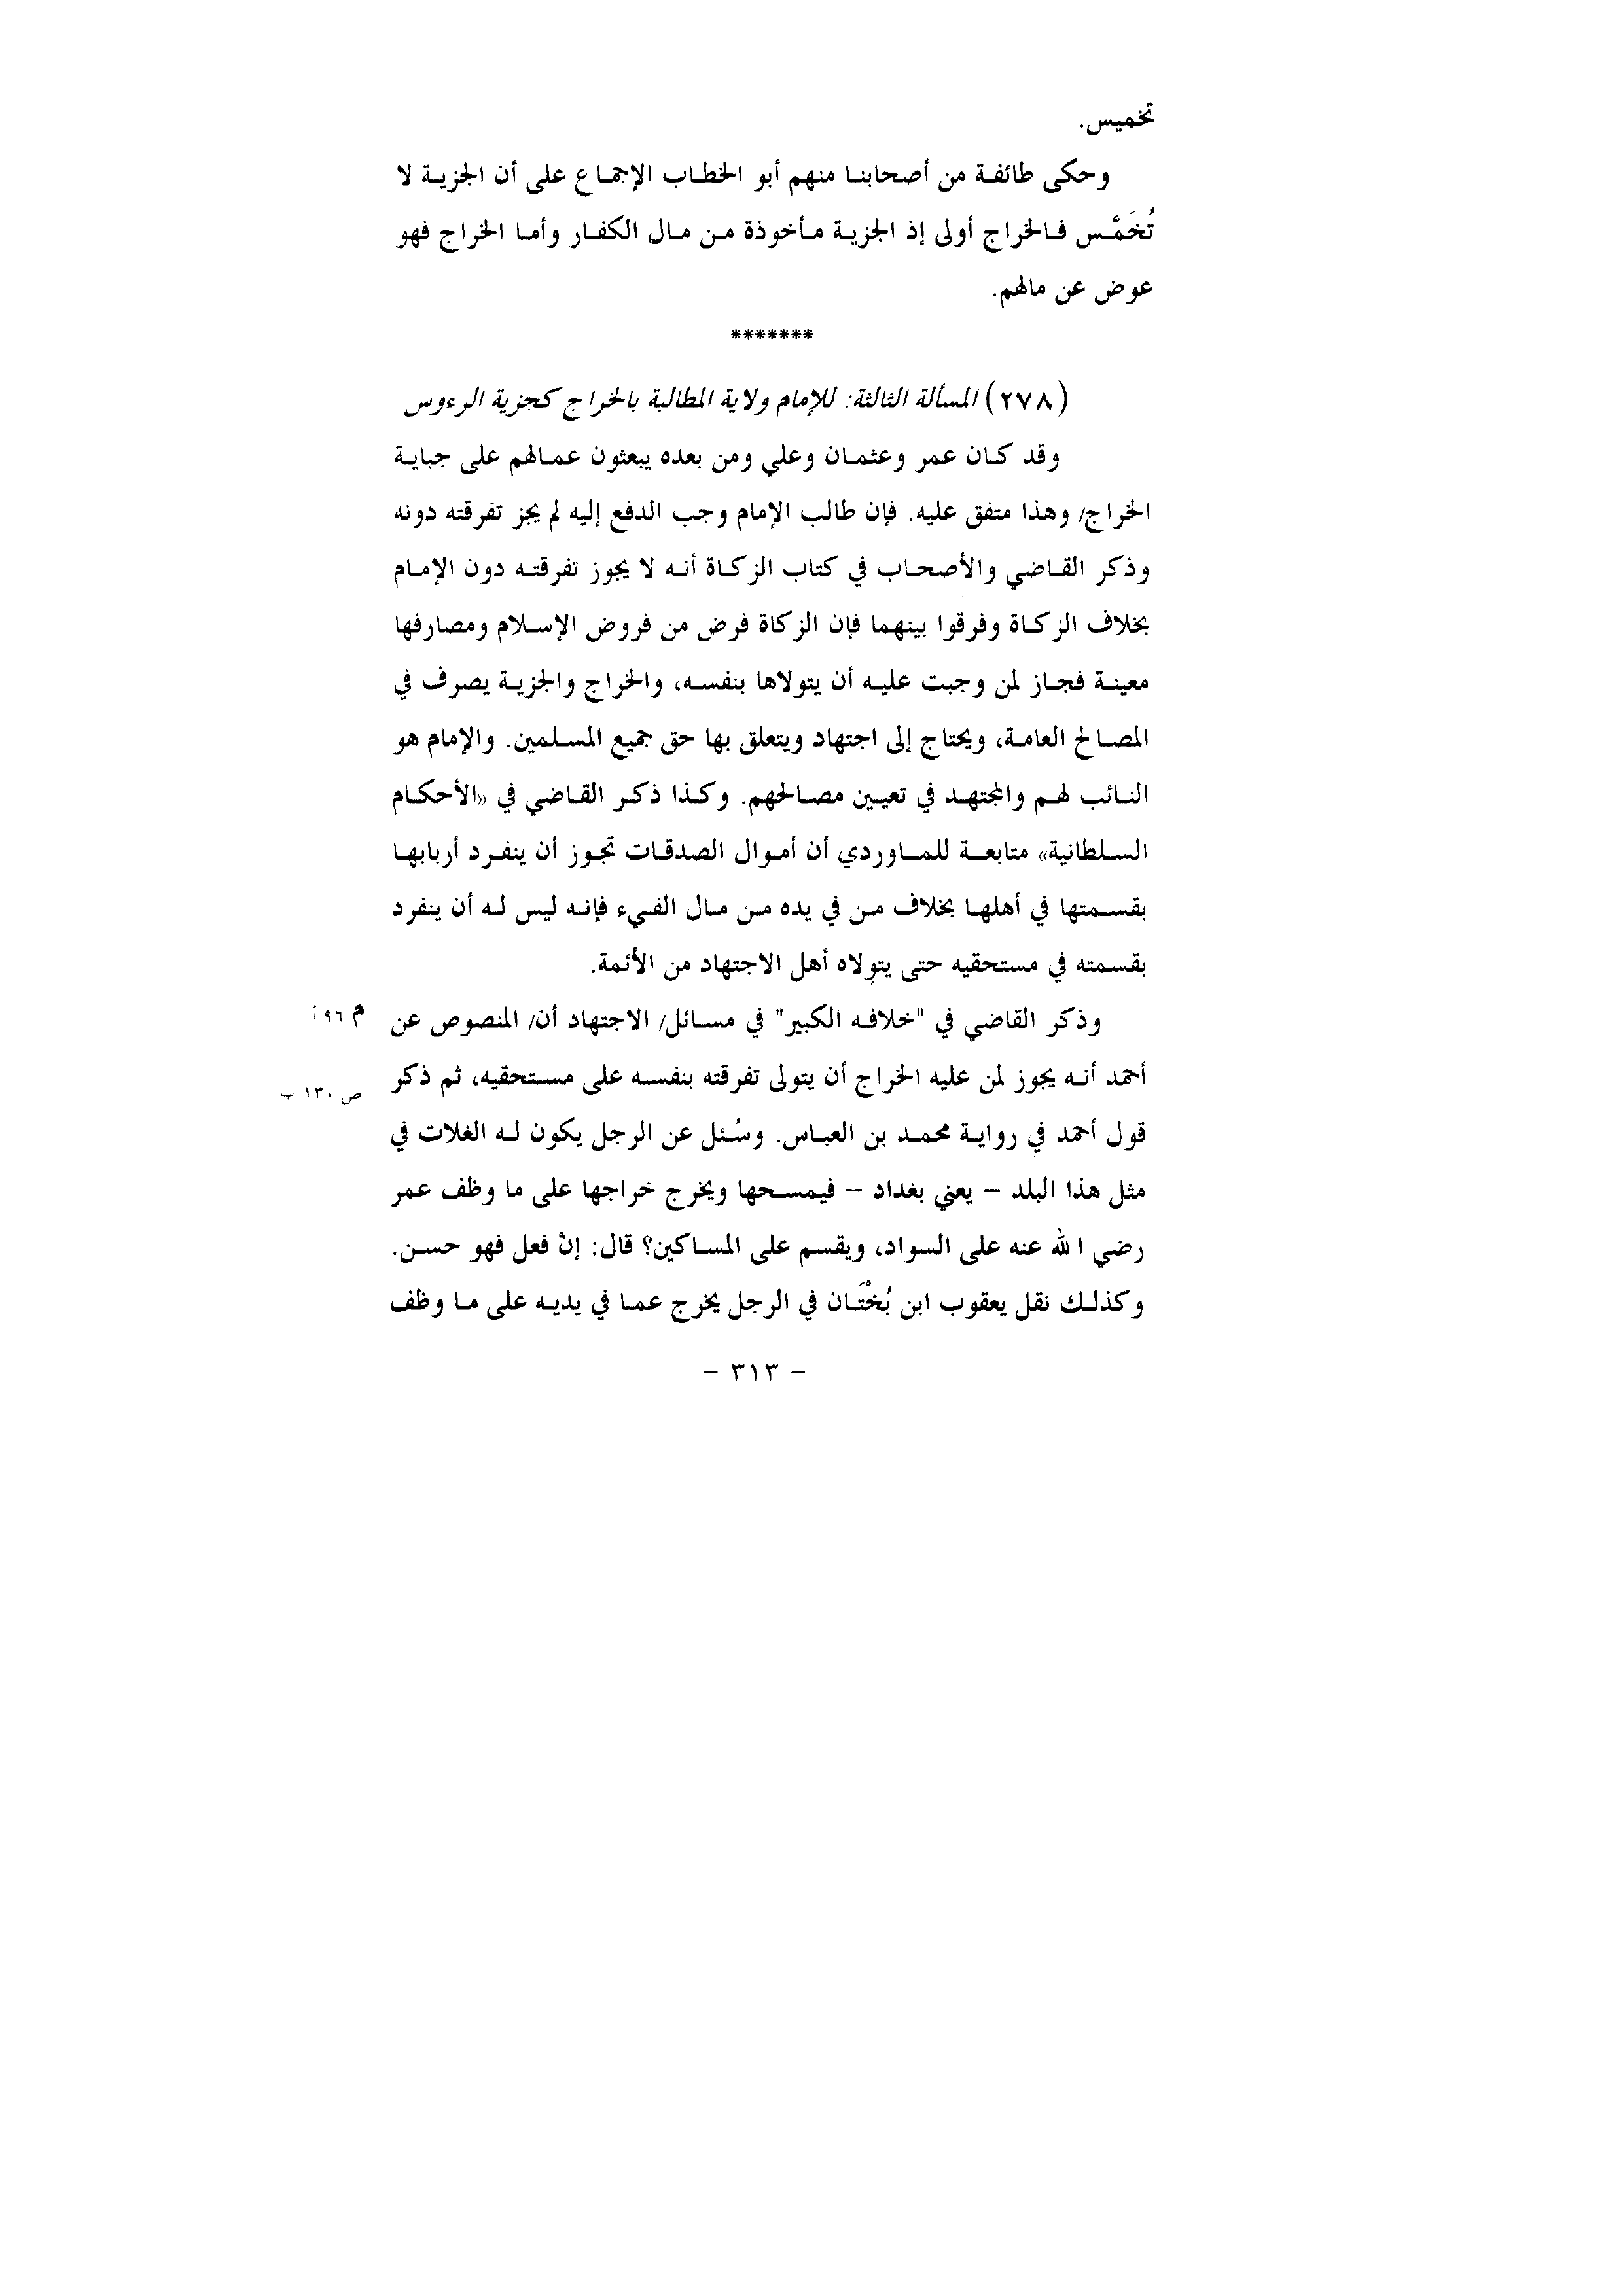 تخميس.
وحكى طائفة من أصحابنا منهم أبو الخطاب الإجماع على أن الجزية لا
تُخَمَّس فالخراج أولى إذ الجزية مأخوذة من مال الكفار وأما الخراج فهو
عوض عن مالهم.
*******
(٢٧٨) المسألة الثالثة: للإمام ولاية المطالبة بالخراج كجزية الرءوس
وقد كان عمر وعثمان وعلي ومن بعده يبعثون عمالهم على جباية
الخراج/ وهذا متفق عليه. فإن طالب الإمام وجب الدفع إليه لم يجز تفرقته دونه
وذكر القاضي والأصحاب في كتاب الزكاة أنه لا يجوز تفرقته دون الإمام
بخلاف الزكاة وفرقوا بينهما فإن الزكاة فرض من فروض الإسلام ومصارفها
معينة فجاز لمن وجبت عليه أن يتولاها بنفسه، والخراج والجزية يصرف في
المصالح العامة، ويحتاج إلى اجتهاد ويتعلق بها حق جميع المسلمين. والإمام هو
النائب لهم والمجتهد في تعيين مصالحهم. وكذا ذكر القاضي في «الأحكام
السلطانية» متابعة للماوردي أن أموال الصدقات تجوز أن ينفرد أربابها
بقسمتها في أهلها بخلاف من في يده من مال الفيء فإنه ليس له أن ينفرد
بقسمته في مستحقيه حتى يتولاه أهل الاجتهاد من الأئمة.
وذكر القاضي في "خلافه الكبير" في مسائل/ الاجتهاد أن/ المنصوص عن
م ٩٦ أ
أحمد أنه يجوز لمن عليه الخراج أن يتولى تفرقته بنفسه على مستحقيه، ثم ذكر
ص ١٣٠ ب
قول أحمد في رواية محمد بن العباس. وسُئل عن الرجل يكون له الغلات في
مثل هذا البلد – يعني بغداد – فيمسحها ويخرج خراجها على ما وظف عمر
رضي الله عنه على السواد، ويقسم على المساكين؟ قال: إنْ فعل فهو حسن.
وكذلك نقل يعقوب ابن بُخْتَان في الرجل يخرج عما في يديه على ما وظف
– ٣١٣ –